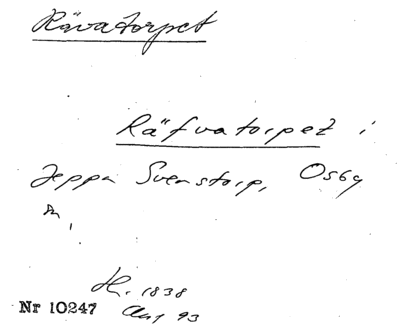 Rävatorpet
Räfvatorpet i
Jeppa Svenstorp, Osby
sn,
H. 1838
Nr 10247 Aug 93